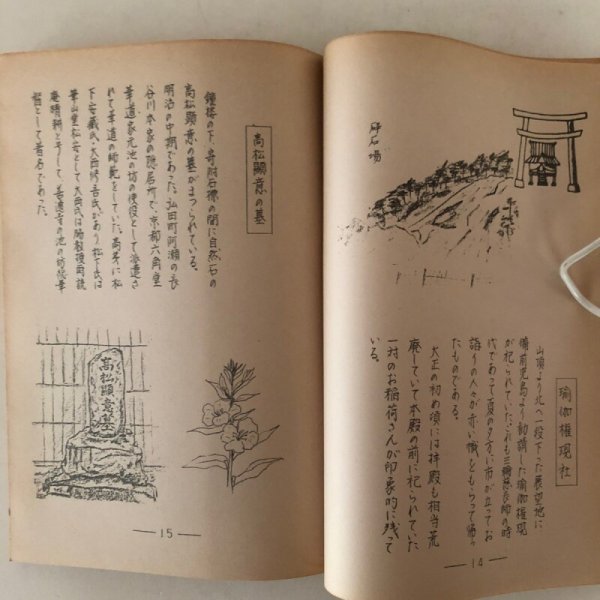 砕石場
瑜伽権現社
山頂より北へ一段下った展望地に
備前児島より勧請した瑜伽権現
が祀られていた。これも三輪慈長師の時
代であって夏の夕方に市が立ってお
詣りの人々が赤い幟をもらって帰っ
たものである。
大正の初め頃には拝殿も相当荒
廃していて本殿の前に祀られていた
一対のお稲荷さんが印象的に残って
いる。
14
高松顕意の墓
鐘楼の下、寄附石標の間に自然石の
高松顕意の墓がまつられている。
明治の中期であった。弘田町阿瀬の長
谷川本家の隠居所で、京都六角堂
華道家元池の坊の使役として派遣さ
れて華道の師範をしていた。高弟に松
下安蔵氏・大西修吾氏があり松下氏は
華山堂松安として大西氏は
庵晴耕と号して、善通寺の池の坊
督として著名であった。
高松顕意墓
15